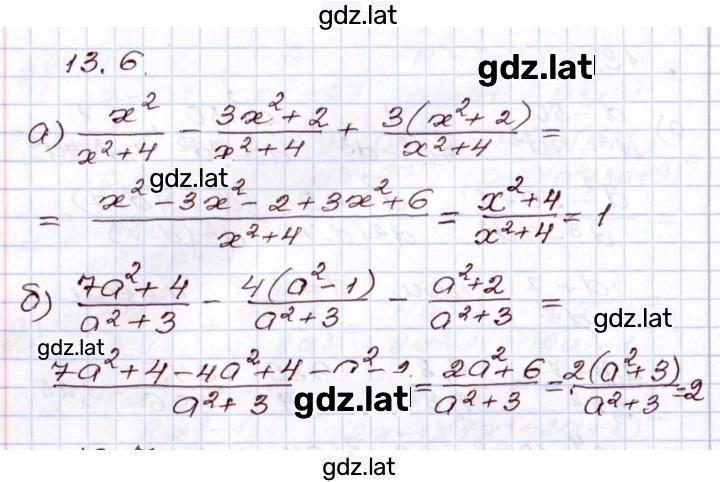 gdz.lat
13.6.
gdz.lat
а) x²/(x²+4) - (3x²+2)/(x²+4) + 3(x²+2)/(x²+4) =
gdz.lat
= (x²-3x²-2+3x²+6)/(x²+4) = (x²+4)/(x²+4) = 1
б) (7a²+4)/(a²+3) - 4(a²-1)/(a²+3) - (a²+2)/(a²+3) =
gdz.lat
gdz.lat
(7a²+4-4a²+4-a²-)/(a²+3) = (2a²+6)/(a²+3) = 2(a²+3)/(a²+3) = 2
gdz.lat
gdz.lat